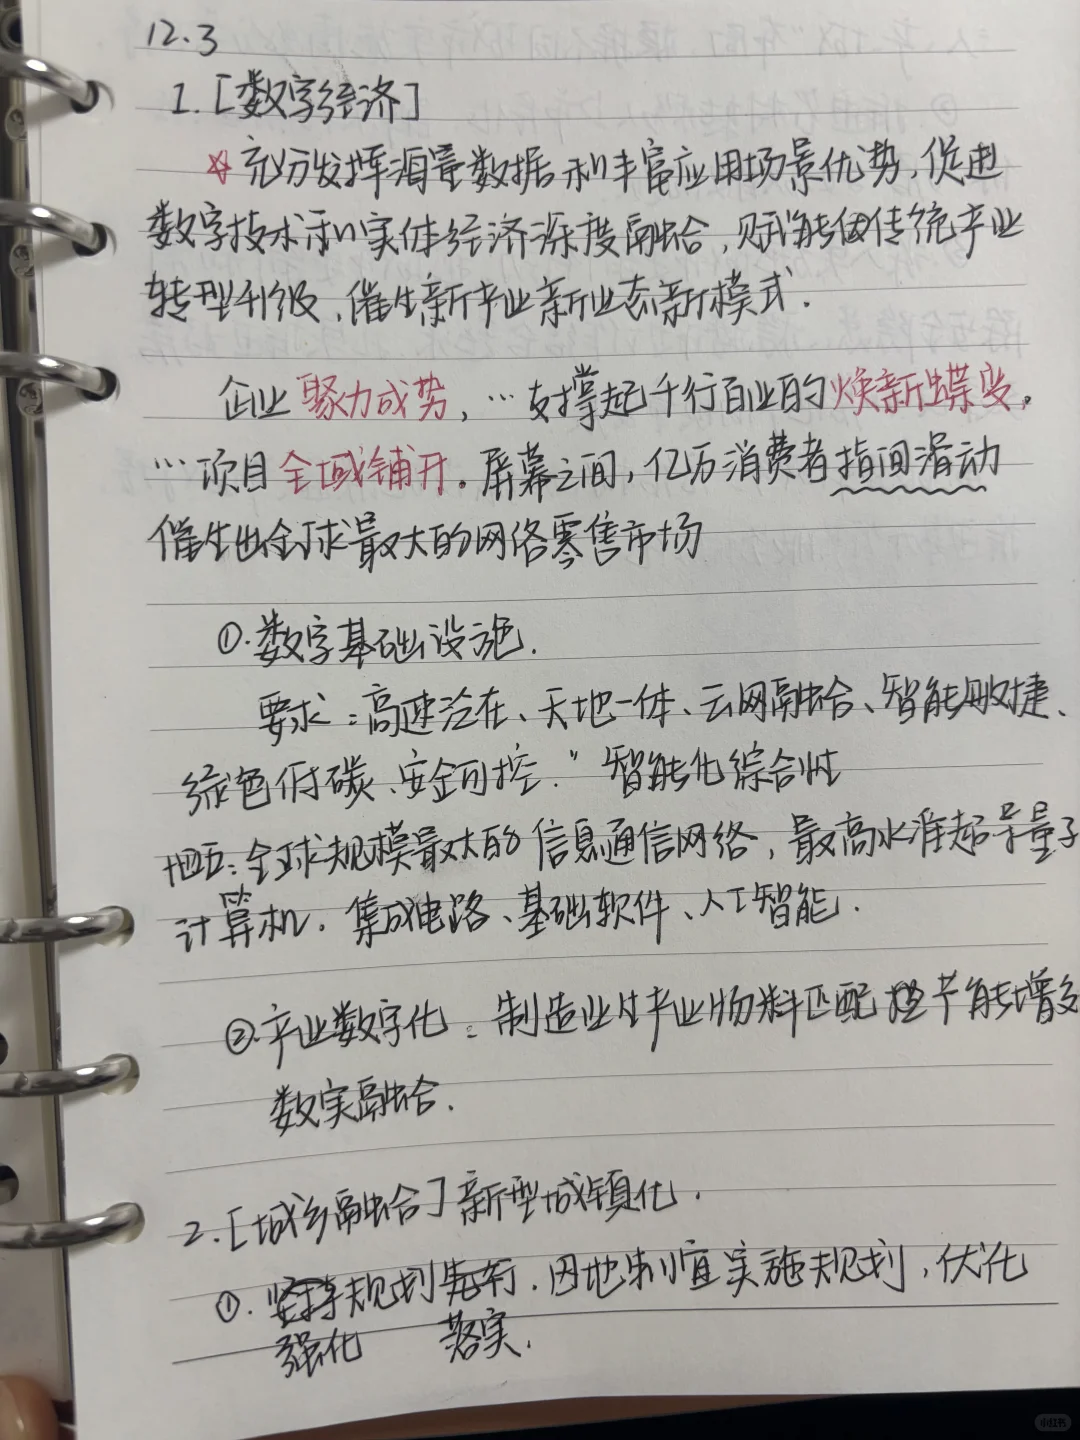 12.3
1.[数字经济]
☆充分发挥海量数据和丰富应用场景优势,促进
数字技术和实体经济深度融合,赋能传统产业
转型升级、催生新产业新业态新模式.
企业聚力成势,…支撑起千行百业的焕新蝶变。
…项目全域铺开。屏幕之间,亿万消费者指间滑动
催生出全球最大的网络零售市场
①.数字基础设施.
要求:高速泛在、天地一体、云网融合、智能敏捷、
绿色低碳、安全可控."智能化综合性
全球规模最大的信息通信网络,最高水准超导量子
计算机.集成电路、基础软件、人工智能.
②.产业数字化:制造业生产业物料匹配 节能增效
数实融合.
2.[城乡融合]新型城镇化.
①.坚持规划先行.因地制宜实施规划,优化
强化 落实.
小红书